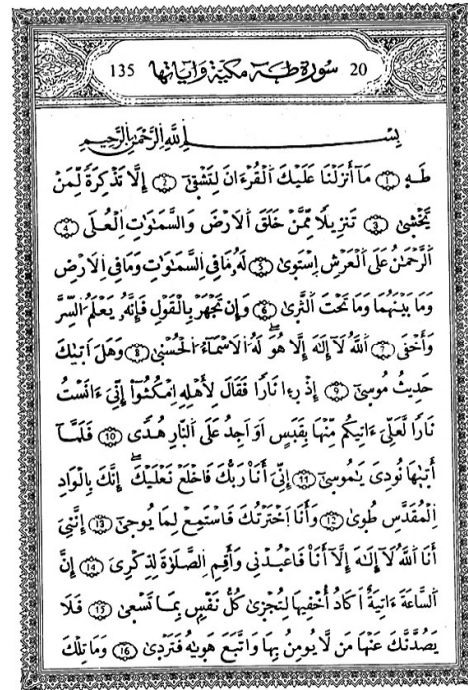 20 سورة طه مكية وآياتها 135
بِسْمِ اِللَّهِ اِلرَّحْمَٰنِ اِلرَّحِيمِ
طَهِ ١ مَآ أَنزَلْنَا عَلَيْكَ اَلْقُرْءَانَ لِتَشْقٰىٓ ٢ إِلَّا تَذْكِرَةً لِّمَنْ
يَّخْشٰىۖ ٣ تَنزِيلًا مِّمَّنْ خَلَقَ اَلَارْضَ وَالسَّمَٰوَٰتِ اِلْعُلَى ٤
اَلرَّحْمَٰنُ عَلَى اَلْعَرْشِ اِسْتَوٰىۖ ٥ لَهُۥ مَا فِي اِلسَّمَٰوَٰتِ وَمَا فِي اِلَارْضِ
وَمَا بَيْنَهُمَا وَمَا تَحْتَ اَلثَّرٰىۖ ٦ وَإِن تَجْهَرْ بِالْقَوْلِ فَإِنَّهُۥ يَعْلَمُ اُلسِّرَّ
وَأَخْفَىۖ ٧ اَللَّهُ لَآ إِلَٰهَ إِلَّا هُوَۖ لَهُ اُلَاسْمَآءُ اُلْحُسْنٰىۖ ٨ وَهَلَ اَتٰيكَ
حَدِيثُ مُوسٰىٓ ٩ إِذْ رِءٰا نَارًا فَقَالَ لِأَهْلِهِ اِمْكُثُوٓاْ إِنِّيَ ءَانَسْتُ
نَارًا لَّعَلِّيَ ءَاتِيكُم مِّنْهَا بِقَبَسٍ اَوَ اَجِدُ عَلَى اَلنّٰارِ هُدًى ١٠ فَلَمَّآ
أَتٰيٰهَا نُودِيَ يَٰمُوسٰىٓ ١١ إِنِّيَ أَنَا رَبُّكَ فَاخْلَعْ نَعْلَيْكَۖ إِنَّكَ بِالْوَادِ
اِلْمُقَدَّسِ طُوٰىۖ ١٢ وَأَنَا اَخْتَرْتُكَ فَاسْتَمِعْ لِمَا يُوحٰىٓ ١٣ إِنَّنِيَ
أَنَا اَللَّهُ لَآ إِلَٰهَ إِلَّآ أَنَا فَاعْبُدْنِي وَأَقِمِ اِلصَّلَوٰةَ لِذِكْرِيَ ١٤ إِنَّ
اَلسَّاعَةَ ءَاتِيَةٌ اَكَادُ أُخْفِيهَا لِتُجْزٰى كُلُّ نَفْسٍ بِمَا تَسْعٰىۖ ١٥ فَلَا
يَصُدَّنَّكَ عَنْهَا مَن لَّا يُومِنُ بِهَا وَاتَّبَعَ هَوٰيٰهُ فَتَرْدٰىۖ ١٦ وَمَا تِلْكَ